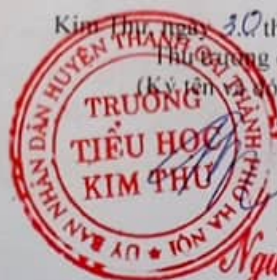 Kim Thư, ngày 30 th
Thủ trưởng
(Ký tên và
ỦY BAN NHÂN DÂN HUYỆN THANH OAI THÀNH PHỐ HÀ NỘI
TRƯỜNG
TIỂU HỌC
KIM THƯ
Ngu